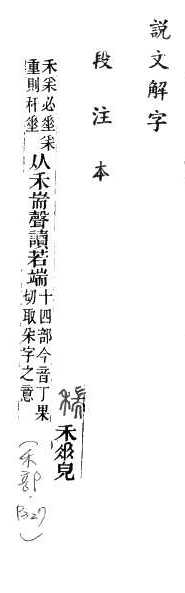 説文解字
段注本
禾𠂹皃
禾采必𠂹采
重則秆𠂹
从禾耑聲讀若端
十四部今音丁果
切取朵字之意
(禾部．P327)